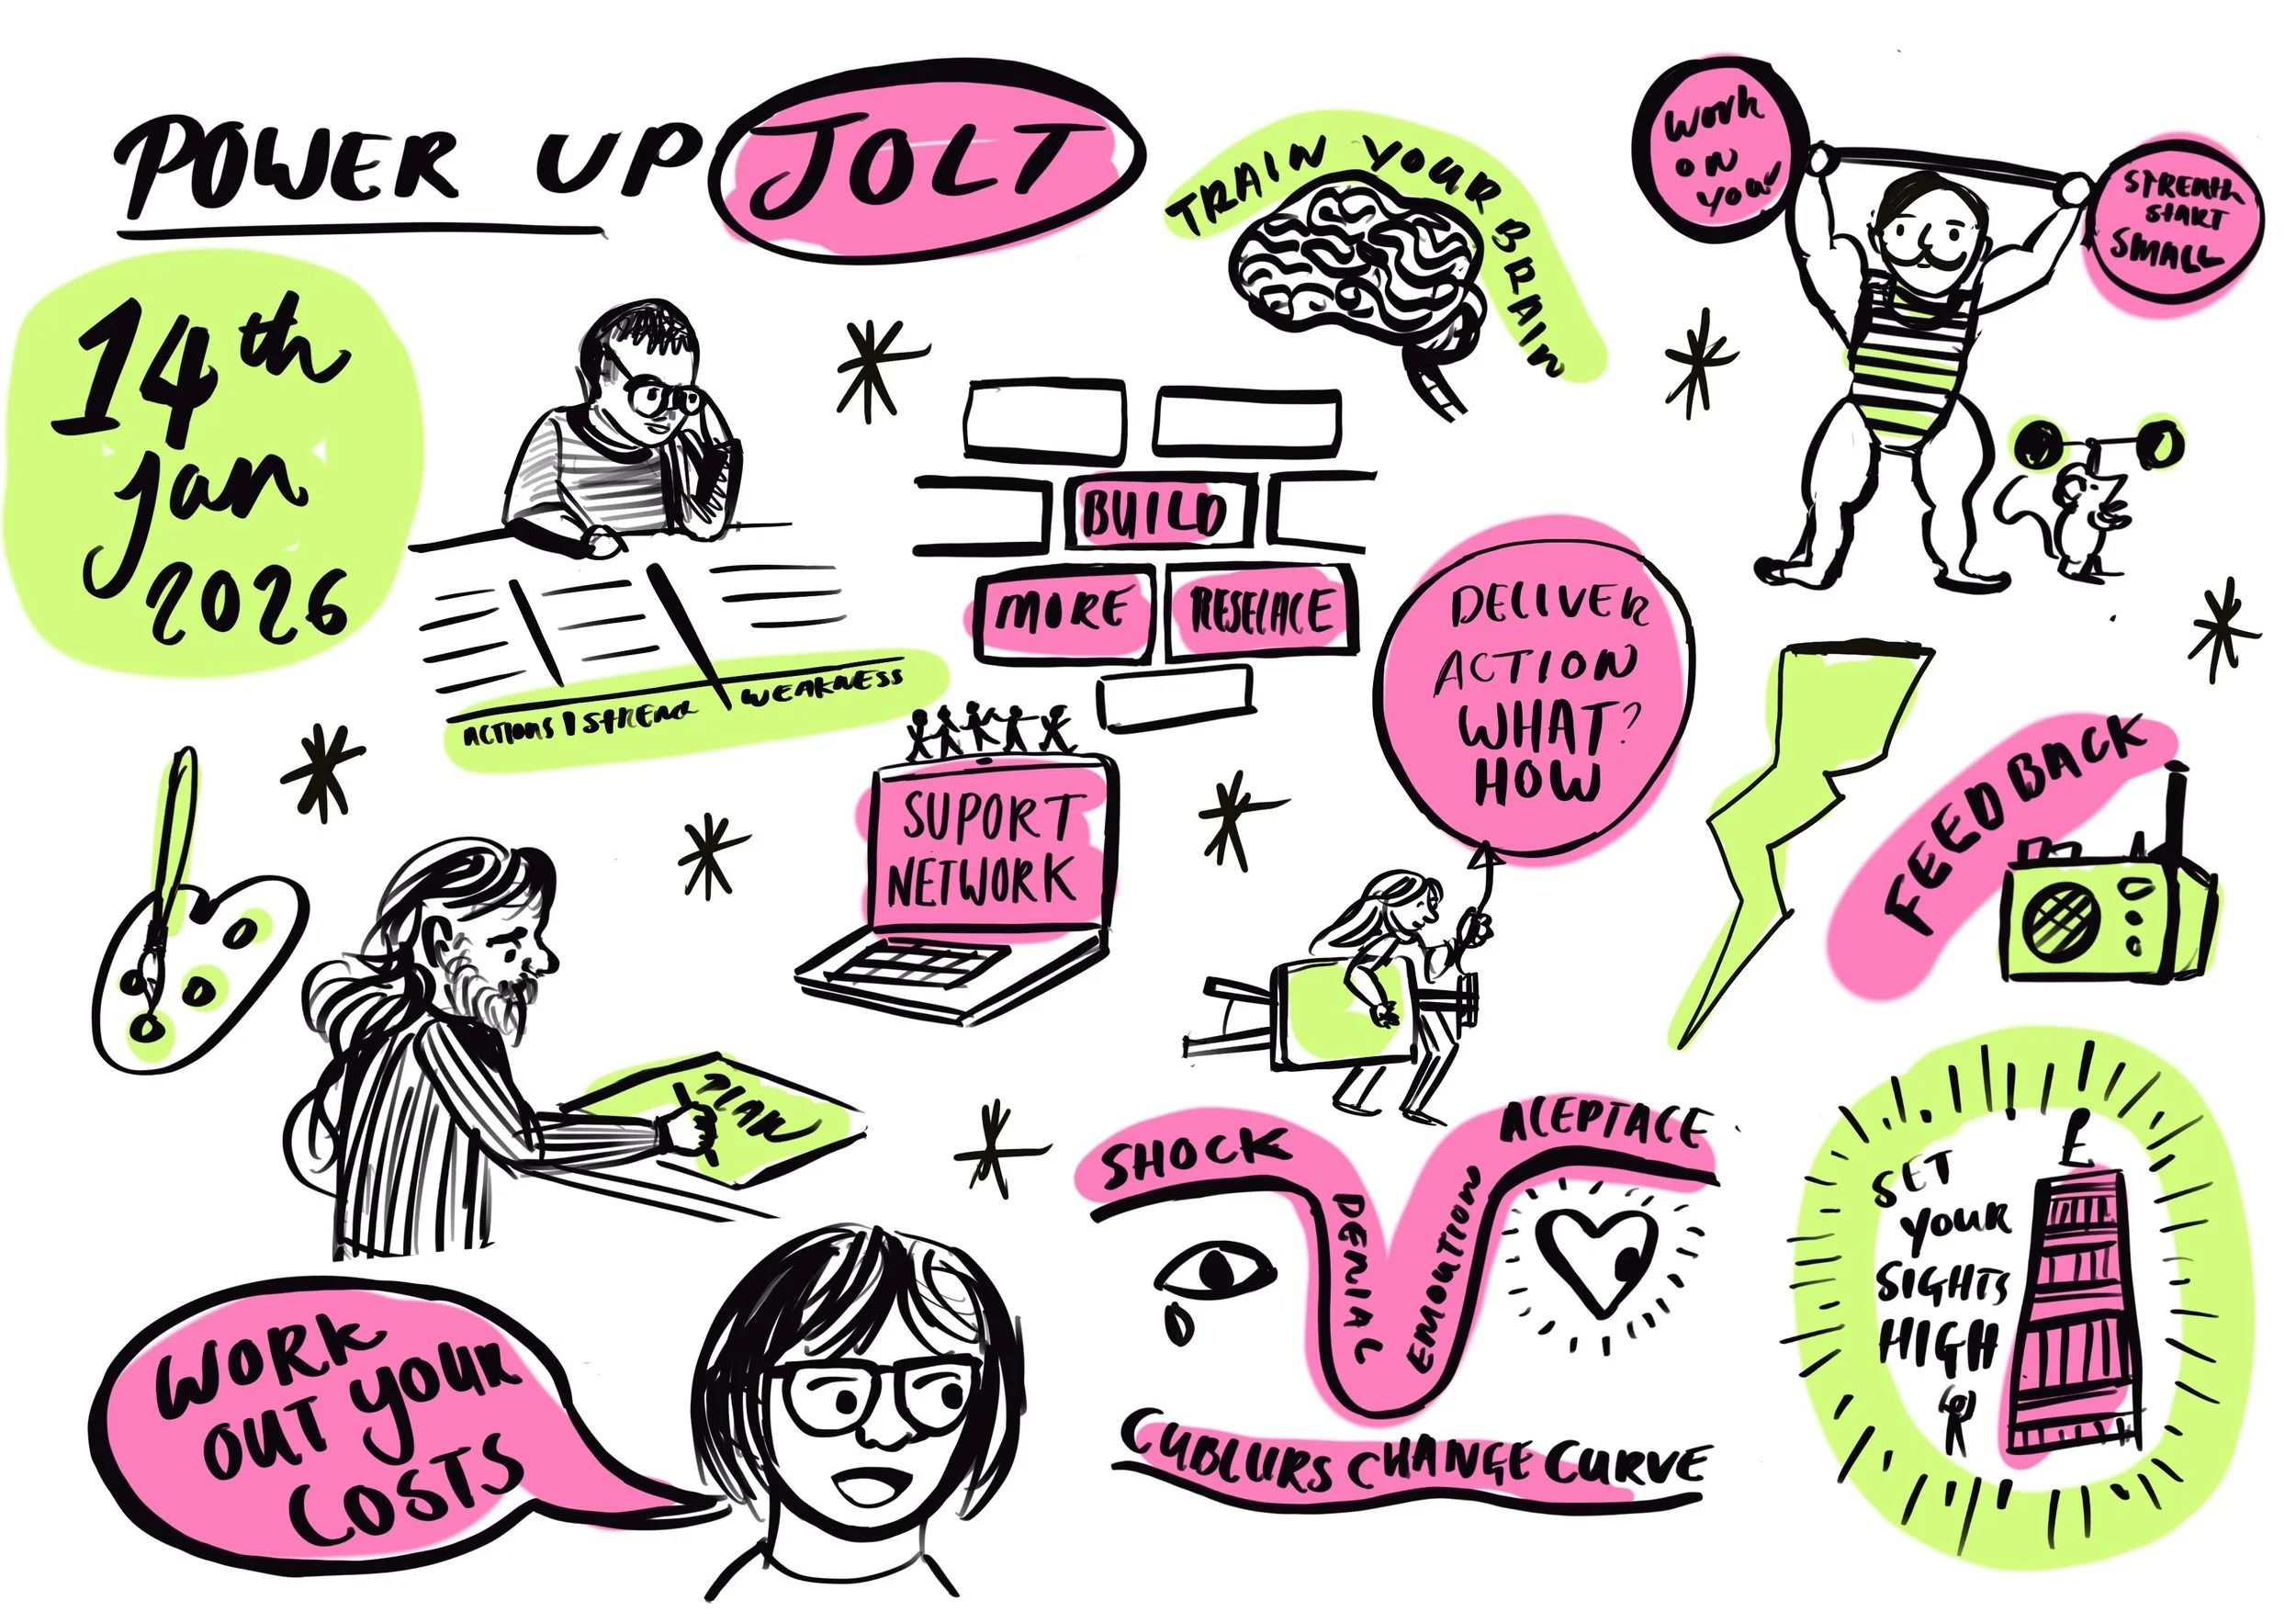 POWER UP JOLT
14th
Jan
2026
TRAIN YOUR BRAIN
Work
ON
You!
START
SMALL
BUILD
MORE
ACTIONS
WEAKNESS
DELIVER
ACTION
WHAT?
HOW
SUPORT
NETWORK
FEEDBACK
PLAN
WORK
OUT YOUR
COSTS
SHOCK
DENIAL
EMOUTION
ACEPTACE
CUBLURS CHANGE CURVE
SET
YOUR
SIGHTS
HIGH
£